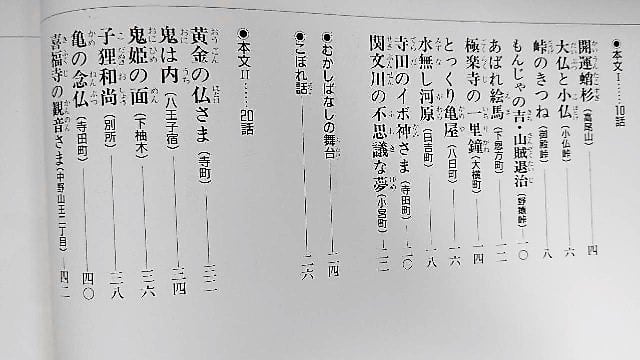 ●本文Ⅰ……10話
開運蛸杉（高尾山）――四
大仏と小仏（小仏峠）――六
峠のきつね（御殿峠）――八
もんじゃの吉・山賊退治（野猿峠）――一〇
あばれ絵馬（下恩方町）――一二
極楽寺の一里鐘（大横町）――一四
とっくり亀屋（八日町）――一六
水無し河原（日吉町）――一八
寺田のイボ神さま（寺田町）――二〇
関文川の不思議な夢（小宮町）――二二
●むかしばなしの舞台――二四
●こぼれ話――二六
●本文Ⅱ……20話
黄金の仏さま（寺町）――三二
鬼は内（八王子宿）――三四
鬼姫の面（下柚木）――三六
子狸和尚（別所）――三八
亀の念仏（寺田町）――四〇
喜福寺の観音さま（中野山王二丁目）――四二